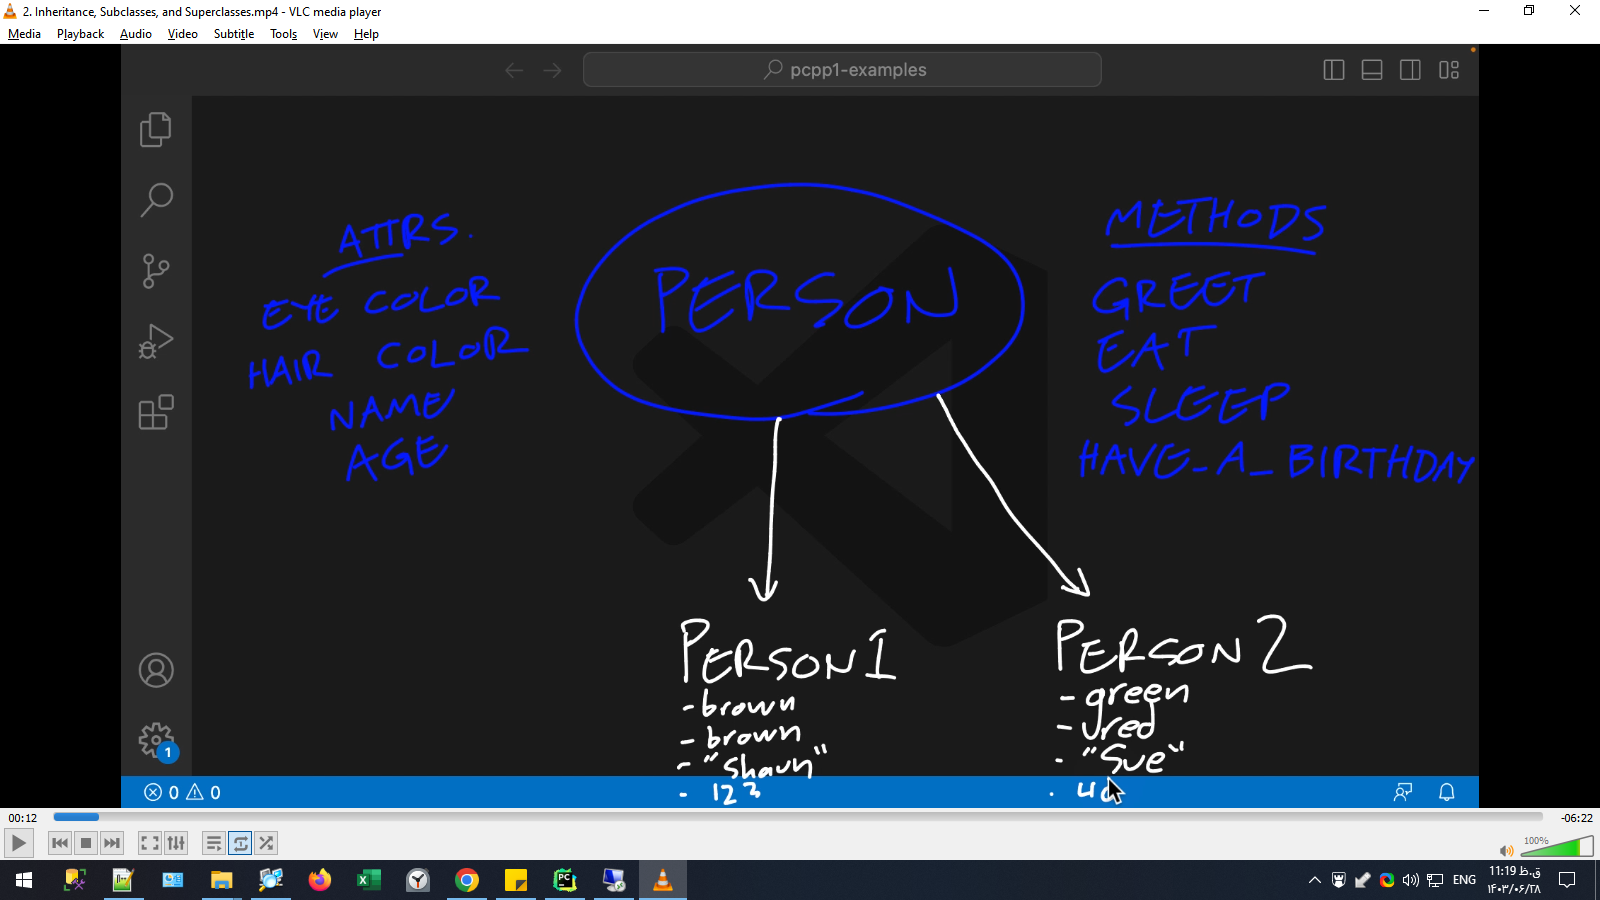 2. Inheritance, Subclasses, and Superclasses.mp4 - VLC media player
Media Playback Audio Video Subtitle Tools View Help
pcpp1-examples
ATTRS.
EYE COLOR
HAIR COLOR
NAME
AGE
PERSON
METHODS
GREET
EAT
SLEEP
HAVE_A_BIRTHDAY
PERSON1
- brown
- brown
- "Shaun"
- 123
PERSON2
- green
- red
- "Sue"
1
0 0
00:12
-06:22
100%
PC
ENG
11:19 ق.ظ
۱۴۰۳/۰۶/۲۸